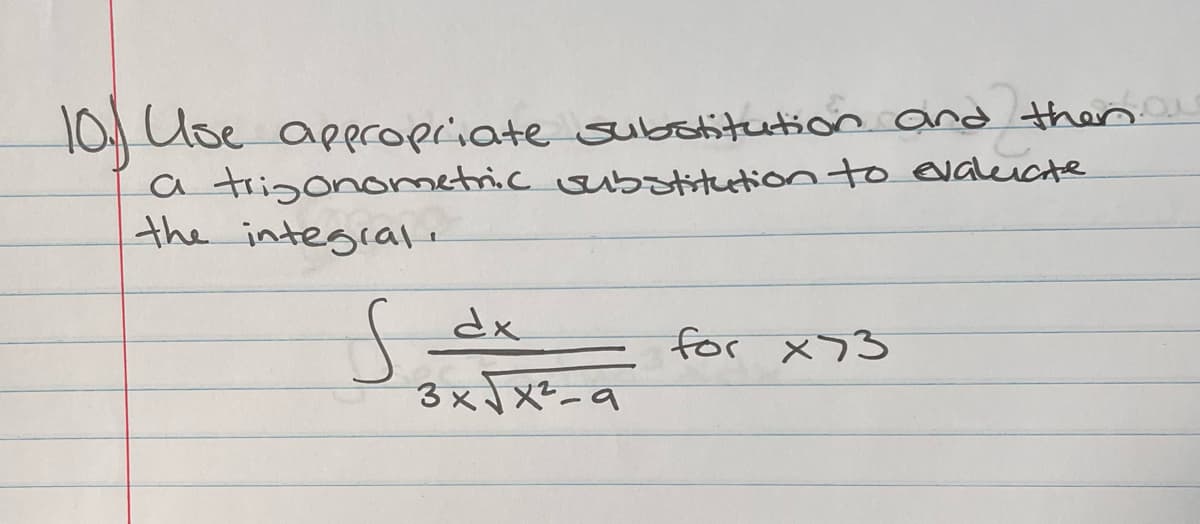 10.) Use appropriate substitution and then
a trigonometric substitution to evaluate
the integral.
∫ dx / 3x√x²-9 for x>3